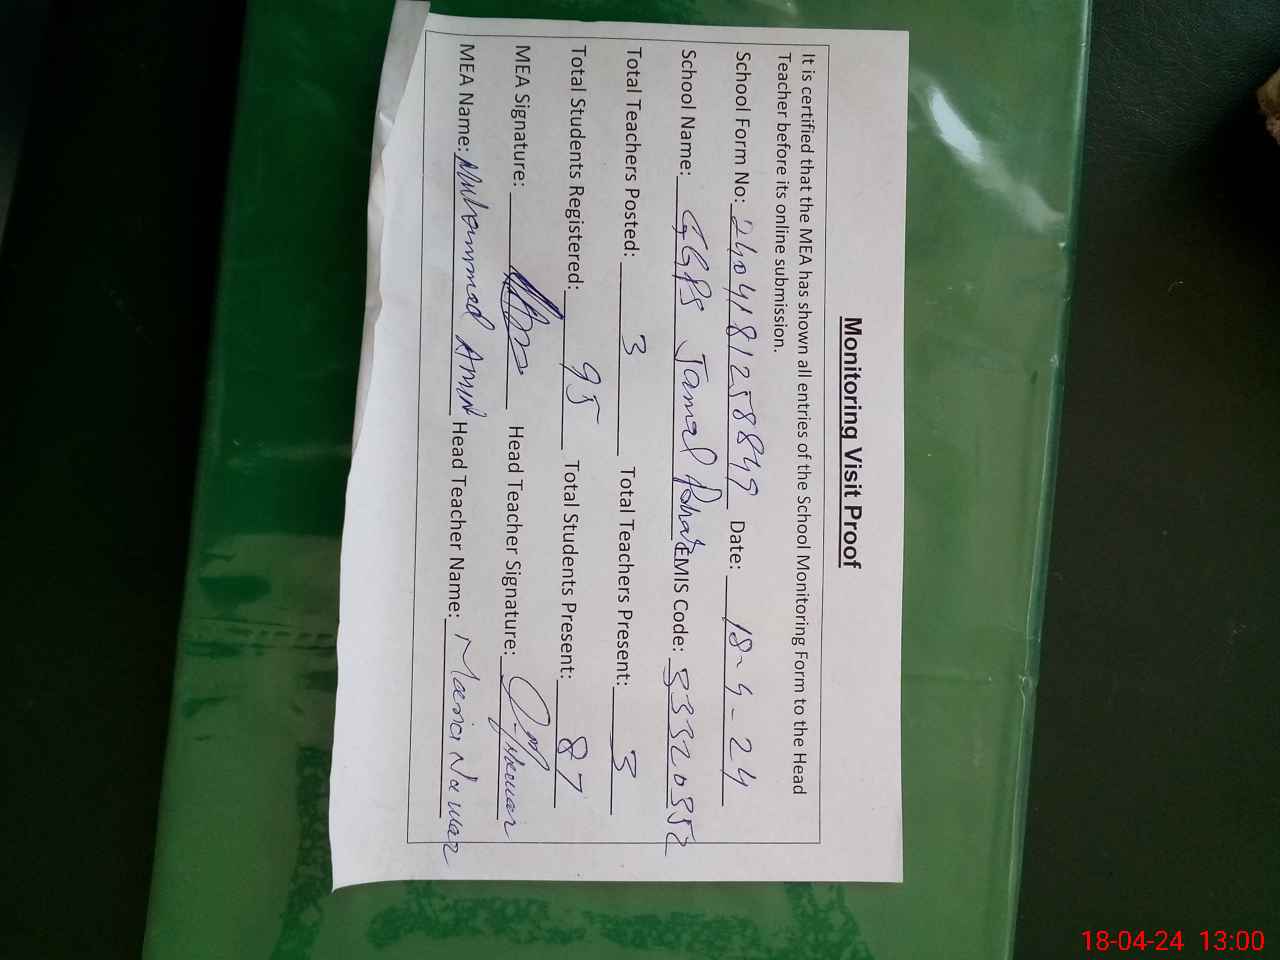 Monitoring Visit Proof
It is certified that the MEA has shown all entries of the School Monitoring Form to the Head
Teacher before its online submission.
School Form No: 2404181258849 Date: 18-4-24
School Name: GGPS Jamal EMIS Code: 33320352
Total Teachers Posted: 3 Total Teachers Present: 3
Total Students Registered: 95 Total Students Present: 87
MEA Signature: Head Teacher Signature:
MEA Name: Muhammad Amin Head Teacher Name: Maria Nawaz
18-04-24 13:00